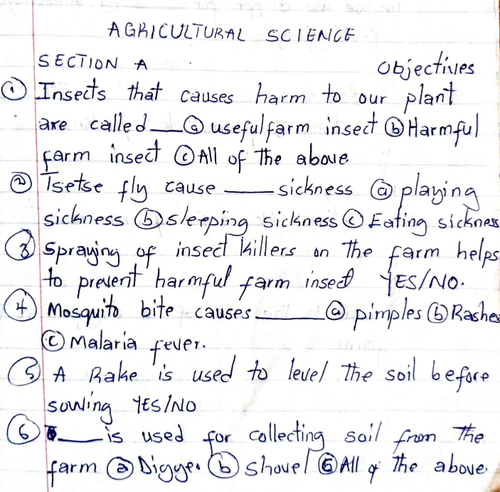 AGRICULTURAL SCIENCE
SECTION A Objectives
① Insects that causes harm to our plant
are called ___ ⓐ useful farm insect ⓑ Harmful
farm insect ⓒ All of the above
② Tsetse fly cause ___ sickness ⓐ playing
sickness ⓑ sleeping sickness ⓒ Eating sickness
③ Spraying of insect killers on the farm helps
to prevent harmful farm insect YES/NO.
④ Mosquito bite causes ___ ⓐ pimples ⓑ Rashes
ⓒ Malaria fever.
⑤ A Rake is used to level the soil before
sowing YES/NO
⑥ ___ is used for collecting soil from the
farm ⓐ Digger ⓑ shovel ⓒ All of the above.